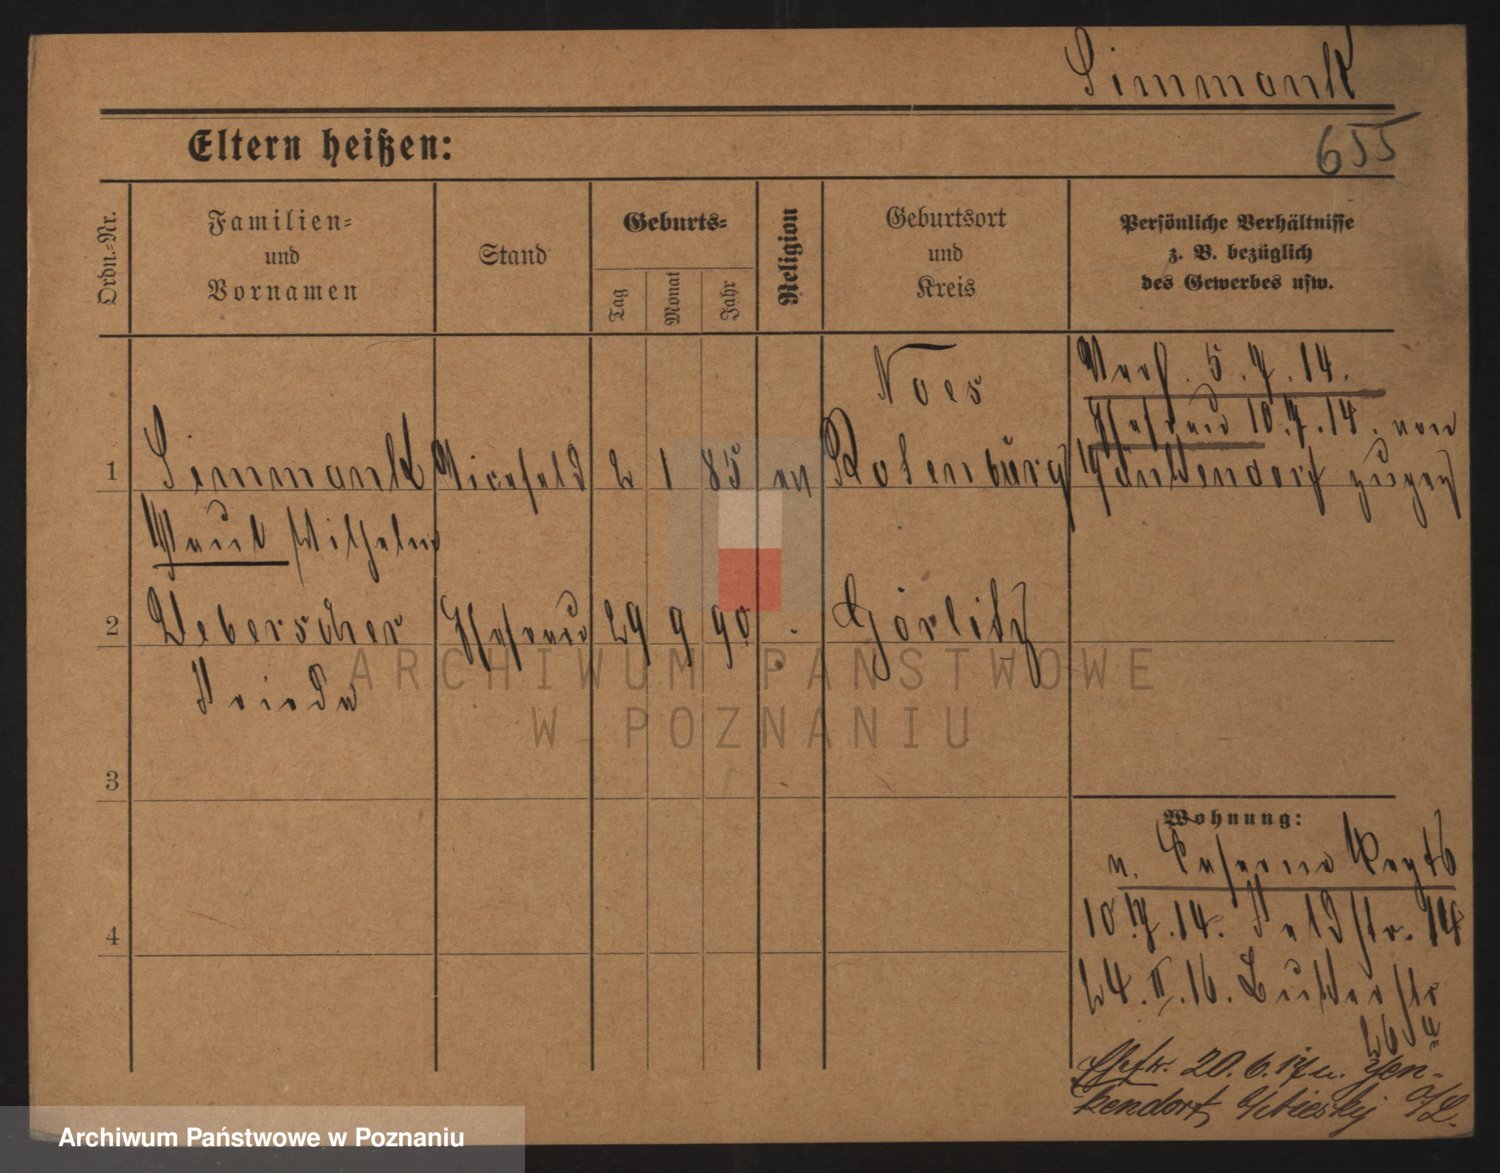 Simmank
655
Eltern heißen:
Ordn.-Nr.
Familien-
und
Vornamen
Stand
Geburts-
Tag
Monat
Jahr
Religion
Geburtsort
und
Kreis
Persönliche Verhältnisse
z. B. bezüglich
des Gewerbes usw.
Verh. 5.7.14.
Ehefrau 10.7.14. von
Noes
1 Simmank Vicefeld 2 1 85 ev Rotenburg zugez
Paul Wilhelm
2 Ueberscher Ehefrau 29 9 90. Görlitz
Frieda
3
Wohnung:
n. Caserne
4
10.7.14. Feldstr. 14
24.II.16.
26
20.6.17
ARCHIWUM PAŃSTWOWE
W POZNANIU
Archiwum Państwowe w Poznaniu